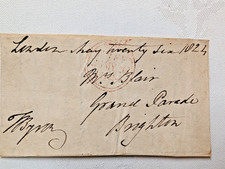 London May twenty six 1824
Mrs Blair
Grand Parade
Brighton
Byron